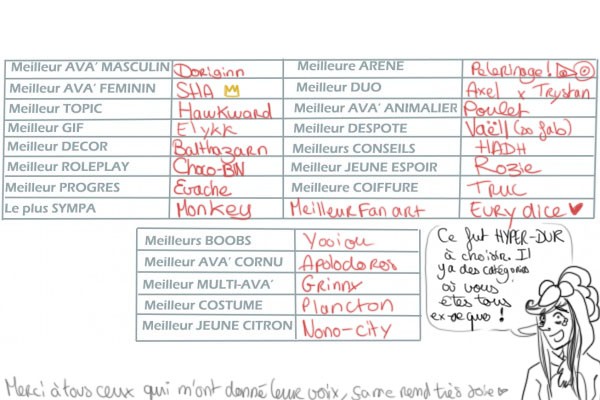 Meilleur AVA' MASCULIN Doriginn Meilleure ARENE Pelerinage!
Meilleur AVA' FEMININ SHA Meilleur DUO Axel x Trystan
Meilleur TOPIC Hawkward Meilleur AVA' ANIMALIER Poulet
Meilleur GIF Elykk Meilleur DESPOTE Vaëll (so fab)
Meilleur DECOR Balthazarn Meilleurs CONSEILS HADH
Meilleur ROLEPLAY Choco-BN Meilleur JEUNE ESPOIR Rozie
Meilleur PROGRES Evache Meilleure COIFFURE TRUC
Le plus SYMPA Monkey Meilleur Fan art Eurydice
Meilleurs BOOBS Yooiou
Meilleur AVA' CORNU Apolodoros
Meilleur MULTI-AVA' Grinnx
Meilleur COSTUME Plancton
Meilleur JEUNE CITRON Nono-city
Ce fut HYPER-DUR
à choisir. Il
y a des catégories
où vous
êtes tous
ex-aequo !
Merci à tous ceux qui m'ont donné leur voix, ça me rend très joie